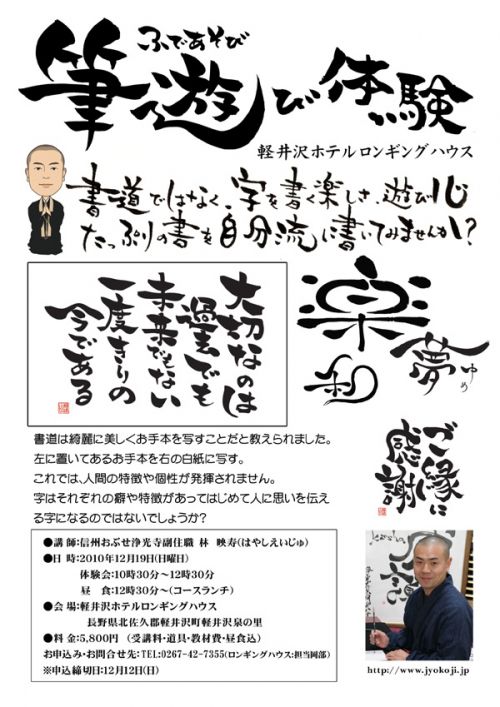 ふであそび
筆遊び体験
軽井沢ホテルロンギングハウス
書道ではなく、字を書く楽しさ、遊び心
たっぷりの書を自分流に書いてみませんか?
大切なのは
過去でも
未来でもない
一度きりの
今である
楽
夢
ゆめ
和
ご縁に
感謝
書道は綺麗に美しくお手本を写すことだと教えられました。
左に置いてあるお手本を右の白紙に写す。
これでは、人間の特徴や個性が発揮されません。
字はそれぞれの癖や特徴があってはじめて人に思いを伝え
る字になるのではないでしょうか?
●講 師:信州おぶせ浄光寺副住職 林 映寿(はやしえいじゅ)
●日 時:2010年12月19日(日曜日)
体験会:10時30分~12時30分
昼 食:12時30分~(コースランチ)
●会 場:軽井沢ホテルロンギングハウス
長野県北佐久郡軽井沢町軽井沢泉の里
●料 金:5,800円 (受講料・道具・教材費・昼食込)
お申込み・お問合せ先:TEL:0267-42-7355(ロンギングハウス:担当岡部)
※申込締切日:12月12日(日)
http://www.jyokoji.jp